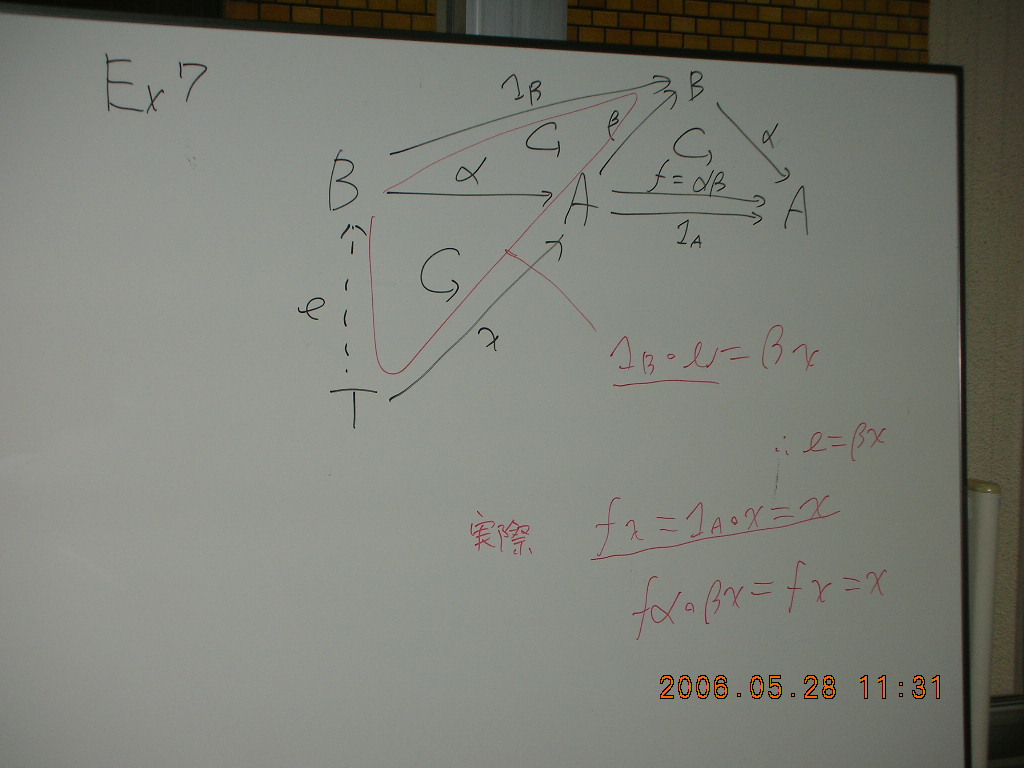 Ex 7
1B
B
β
α
B
α
A
f = αβ
A
1A
e
x
T
1B∘e = βx
∴ e = βx
実際
fx = 1A∘x = x
fα∘βx = fx = x
2006.05.28 11:31